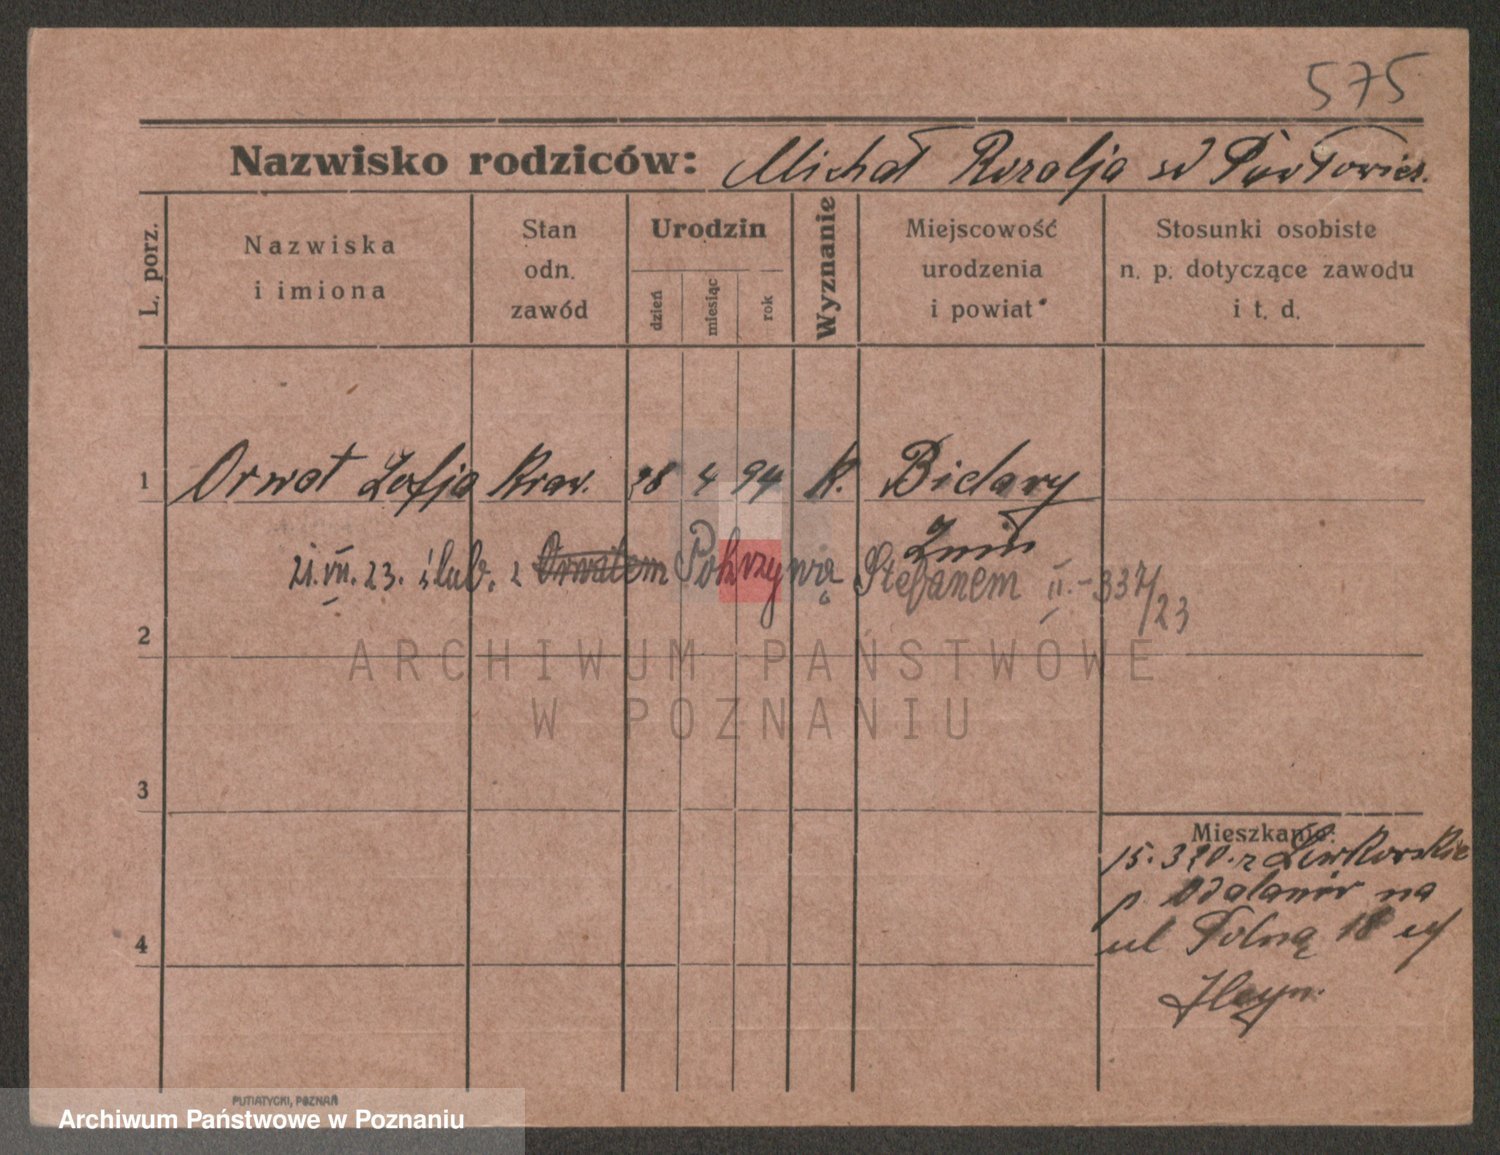 575
Nazwisko rodziców: Michał Rozalja
L. porz.
Nazwiska i imiona
Stan odn. zawód
Urodzin
dzień miesiąc rok
Wyznanie
Miejscowość urodzenia i powiat
Stosunki osobiste n. p. dotyczące zawodu i t. d.
1 Orwat Zofja Kraw. 28 4 94 k.
Żnin
21.VII.23. ślub. z Orwatem Pokrzywą Stefanem II.-337/23
2
ARCHIWUM PAŃSTWOWE
W POZNANIU
3
Mieszkanie:
p. Odalanów na
4
ul Polną 18
PUTIATYCKI, POZNAŃ
Archiwum Państwowe w Poznaniu